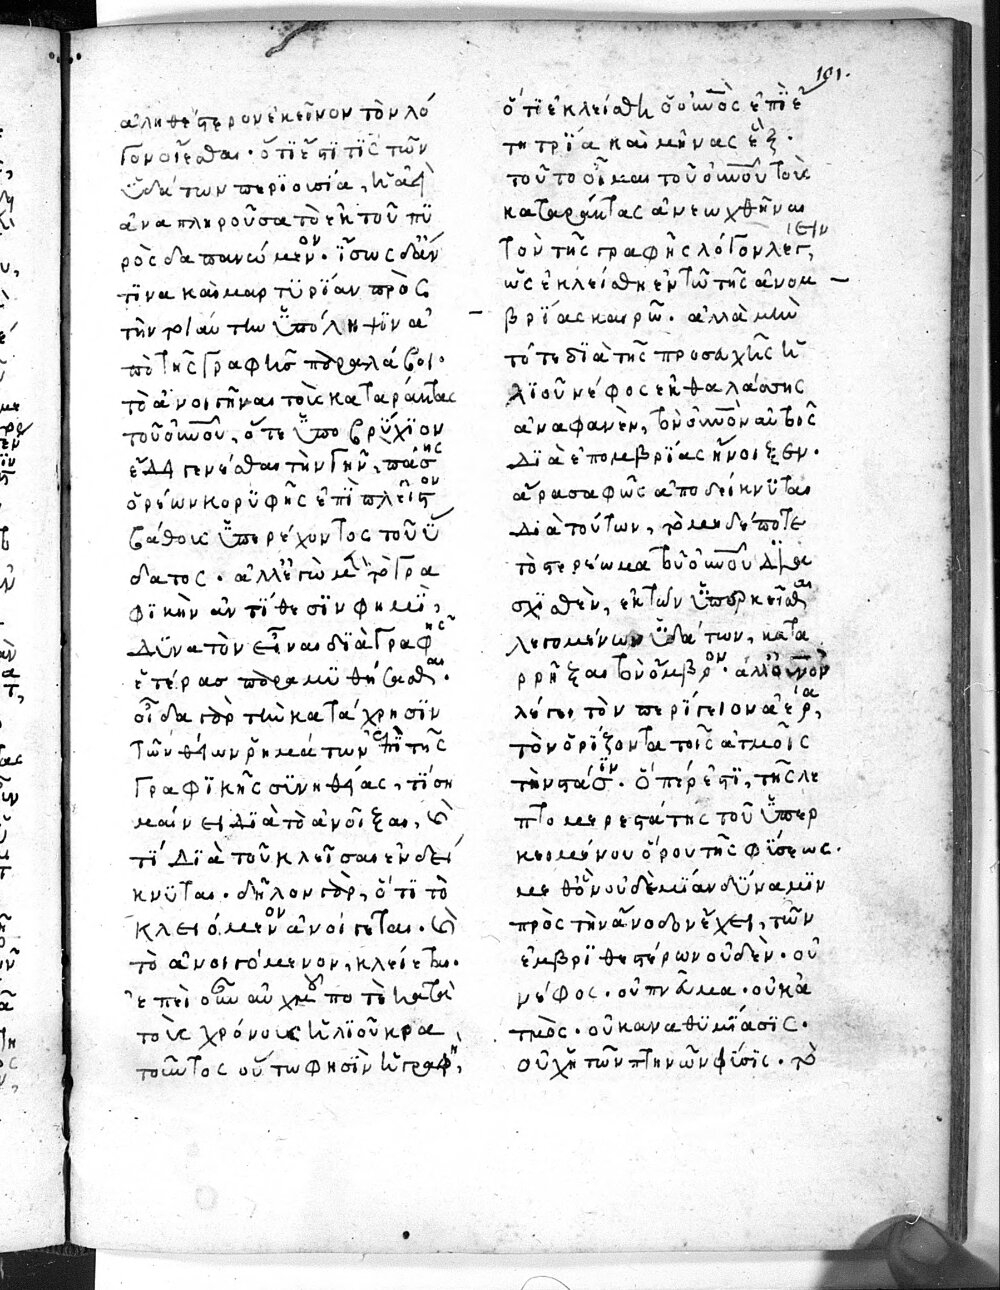 101.
ἀληθέστερον ἐκεῖνον τὸν λό
γον οἴεσθαι· ὅτι ἔστι τίς τῶν
ὑδάτων περιουσία, ἡ
ἀναπληροῦσα τὸ ἐκ τοῦ πυ
ρὸς δαπανώμενον· ἴσως δ' ἄν
τινα καὶ μαρτυρίαν πρὸς
τὴν τοιαύτην ὑπόληψιν ἀ
πὸ τῆς γραφῆς παραλάβοι·
τὸ ἀνοιγῆναι τοὺς καταράκτας
τοῦ οὐνοῦ, ὅτε ὑποβρύχιον
ἔδει γενέσθαι τὴν γῆν, πάσης
ὀρέων κορυφῆς ἐπὶ πλεῖστον
βάθους ὑπερέχοντος τοῦ ὕ
δατος· ἀλλ' ἐγὼ μὴ τὸ γρα
φικὴν ἀντιθεσιν φημὶ,
δυνατὸν εἶναι διὰ γραφῆς
ἑτέρας παραμυθήσασθαι·
οἶδα γὰρ τὴν κατάχρησιν
τῶν θείων ῥημάτων ἐπὶ τῆς
γραφικῆς συνηθείας, τί ση
μαίνει διὰ τὸ ἀνοῖξαι, καὶ
τί διὰ τοῦ κλεῖσαι ἐνδεί
κνυται· δῆλον γὰρ, ὅτι τὸ
κλειόμενον ἀνοίγεται· καὶ
τὸ ἀνοιγόμενον, κλείεται·
ἐπεὶ οὖν αὐχμοῦ ποτὲ κατὰ
τοὺς χρόνους ἡλιοῦ κρα
τοῦντος οὕτω φησὶν ἡ γραφὴ,
ὅτι ἐκλείσθη ὁ οὐνὸς ἐπὶ ἔ
τη τρία καὶ μῆνας ἕξ·
τοῦτο οἶμαι τοῦ οὐνοῦ τοὺς
καταράκτας ἀνεωχθῆναι
τὸν τῆς γραφῆς λόγον λέγειν,
ὡς ἐκλείσθη ἐν τῷ τῆς ἀνομ
βρίας καιρῷ· ἀλλὰ μὴν
τότε διὰ τῆς προσευχῆς ἡ
λιοῦ νέφος ἐκ θαλάσσης
ἀναφανὲν, τὸν οὐνὸν αὐτοῖς
διὰ ἐπομβρίας ἤνοιξεν·
ἄρα σαφῶς ἀποδείκνυται
διὰ τούτων, τὸ μηδέποτε
τὸ στερέωμα τοῦ οὐνοῦ
σχισθὲν, ἐκ τῶν ὑπερκεῖσθαι
λεγομένων ὑδάτων, κατα
ρρῆξαι τὸν ὄμβρον· ἀλλ' οὐνὸν
λέγει τὸν περίγειον ἀέρα,
τὸν ὁρίζοντα τοῖς ἀτμοῖς
τὴν στάσιν· ὅπέρ ἐστι, τῆς λε
πτομερεστάτης τοῦ ὑπερ
κειμένου ὅρου τῆς φύσεως·
μεθ' ὃν οὐδεμίαν δύναμιν
πρὸς τὴν ἄνοδον ἔχει, τῶν
ἐμβριθεστέρων οὐδὲν· οὐ
νέφος· οὐ πνεῦμα· οὐκ ἀ
τμὸς· οὐκ ἀναθυμίασις·
οὐχ ἡ τῶν πτηνῶν φύσις· τὸ